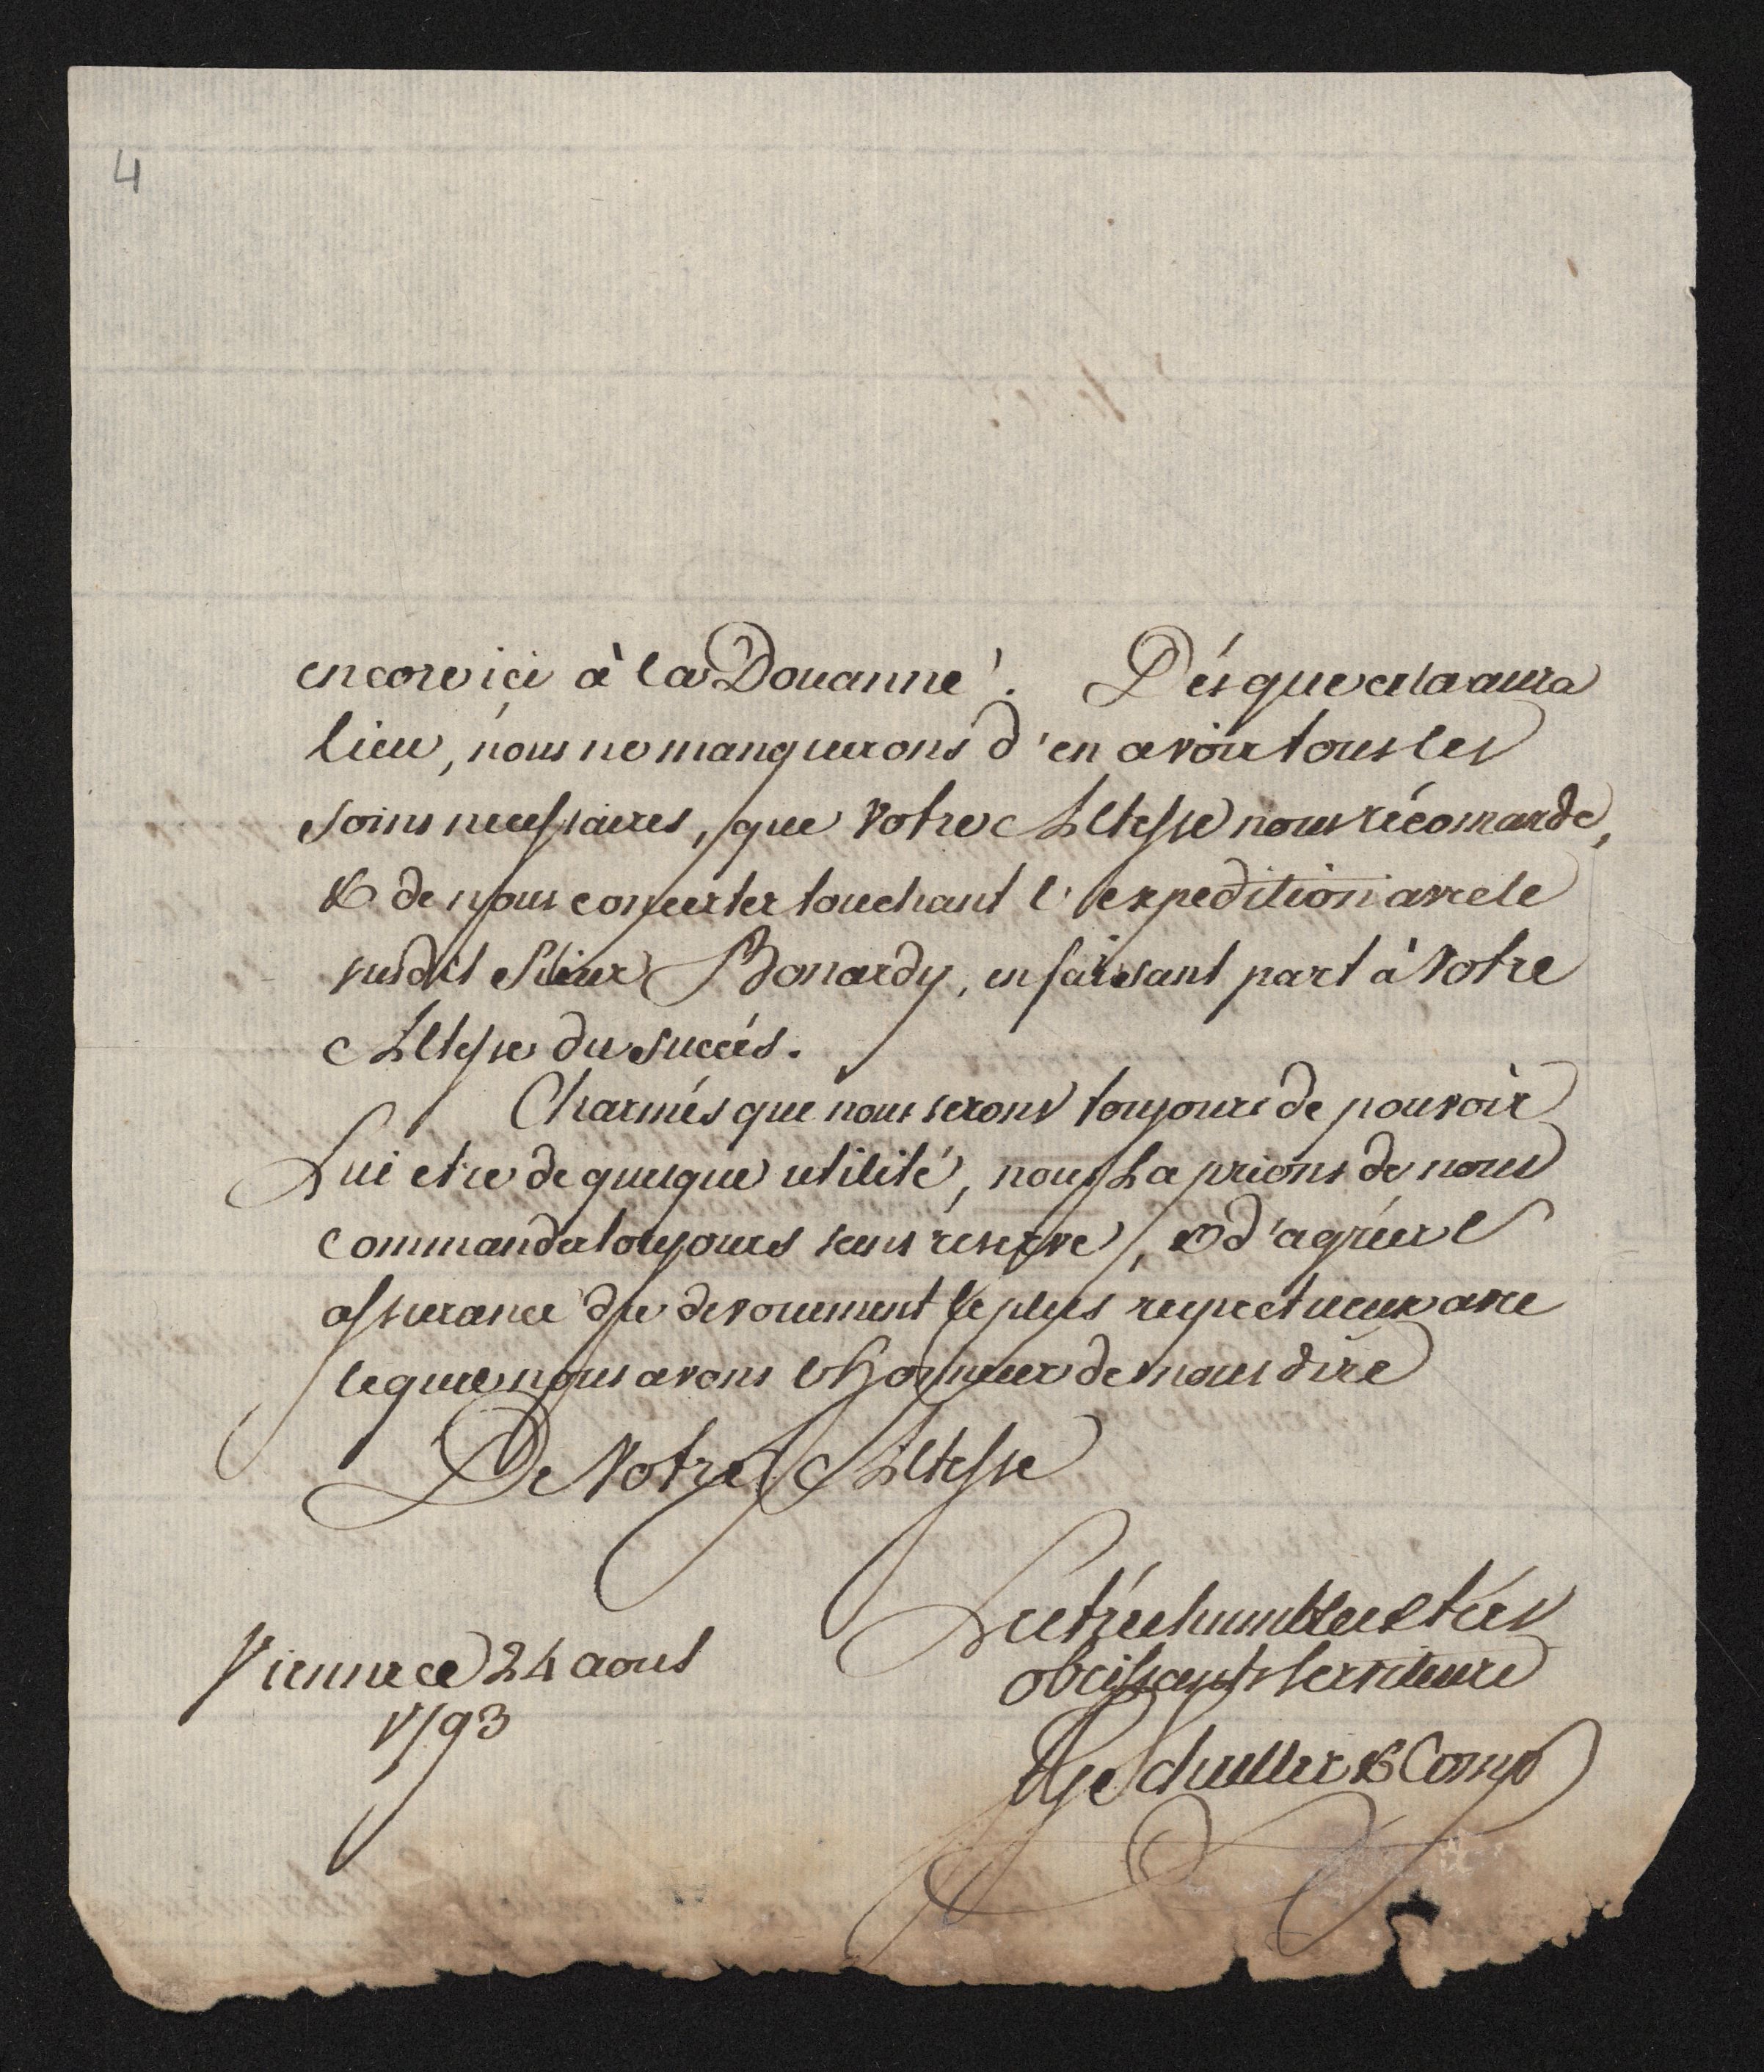 4
encore ici à la Douanne. Dés que cela aura
lieu, nous ne manquerons d'en avoir tous les
soins necessaires, que Votre Altesse nous récomande,
& de nous concerter touchant l'expedition avec le
susdit Sieur Bonardy, en faisant part à Votre
Altesse du succés.
Charmés que nous serons toujours de pouvoir
Lui etre de quelque utilité, nous La prions de nous
commander toujours sans réserve, & d'agréer l'
assurance du devouement le plus respectueux avec
lequel nous avons l'honneur de nous dire
De Votre Altesse
Les trés humbles & trés
obeissants serviteurs
Schuller & Comp
Vienne ce 24 aout
1793